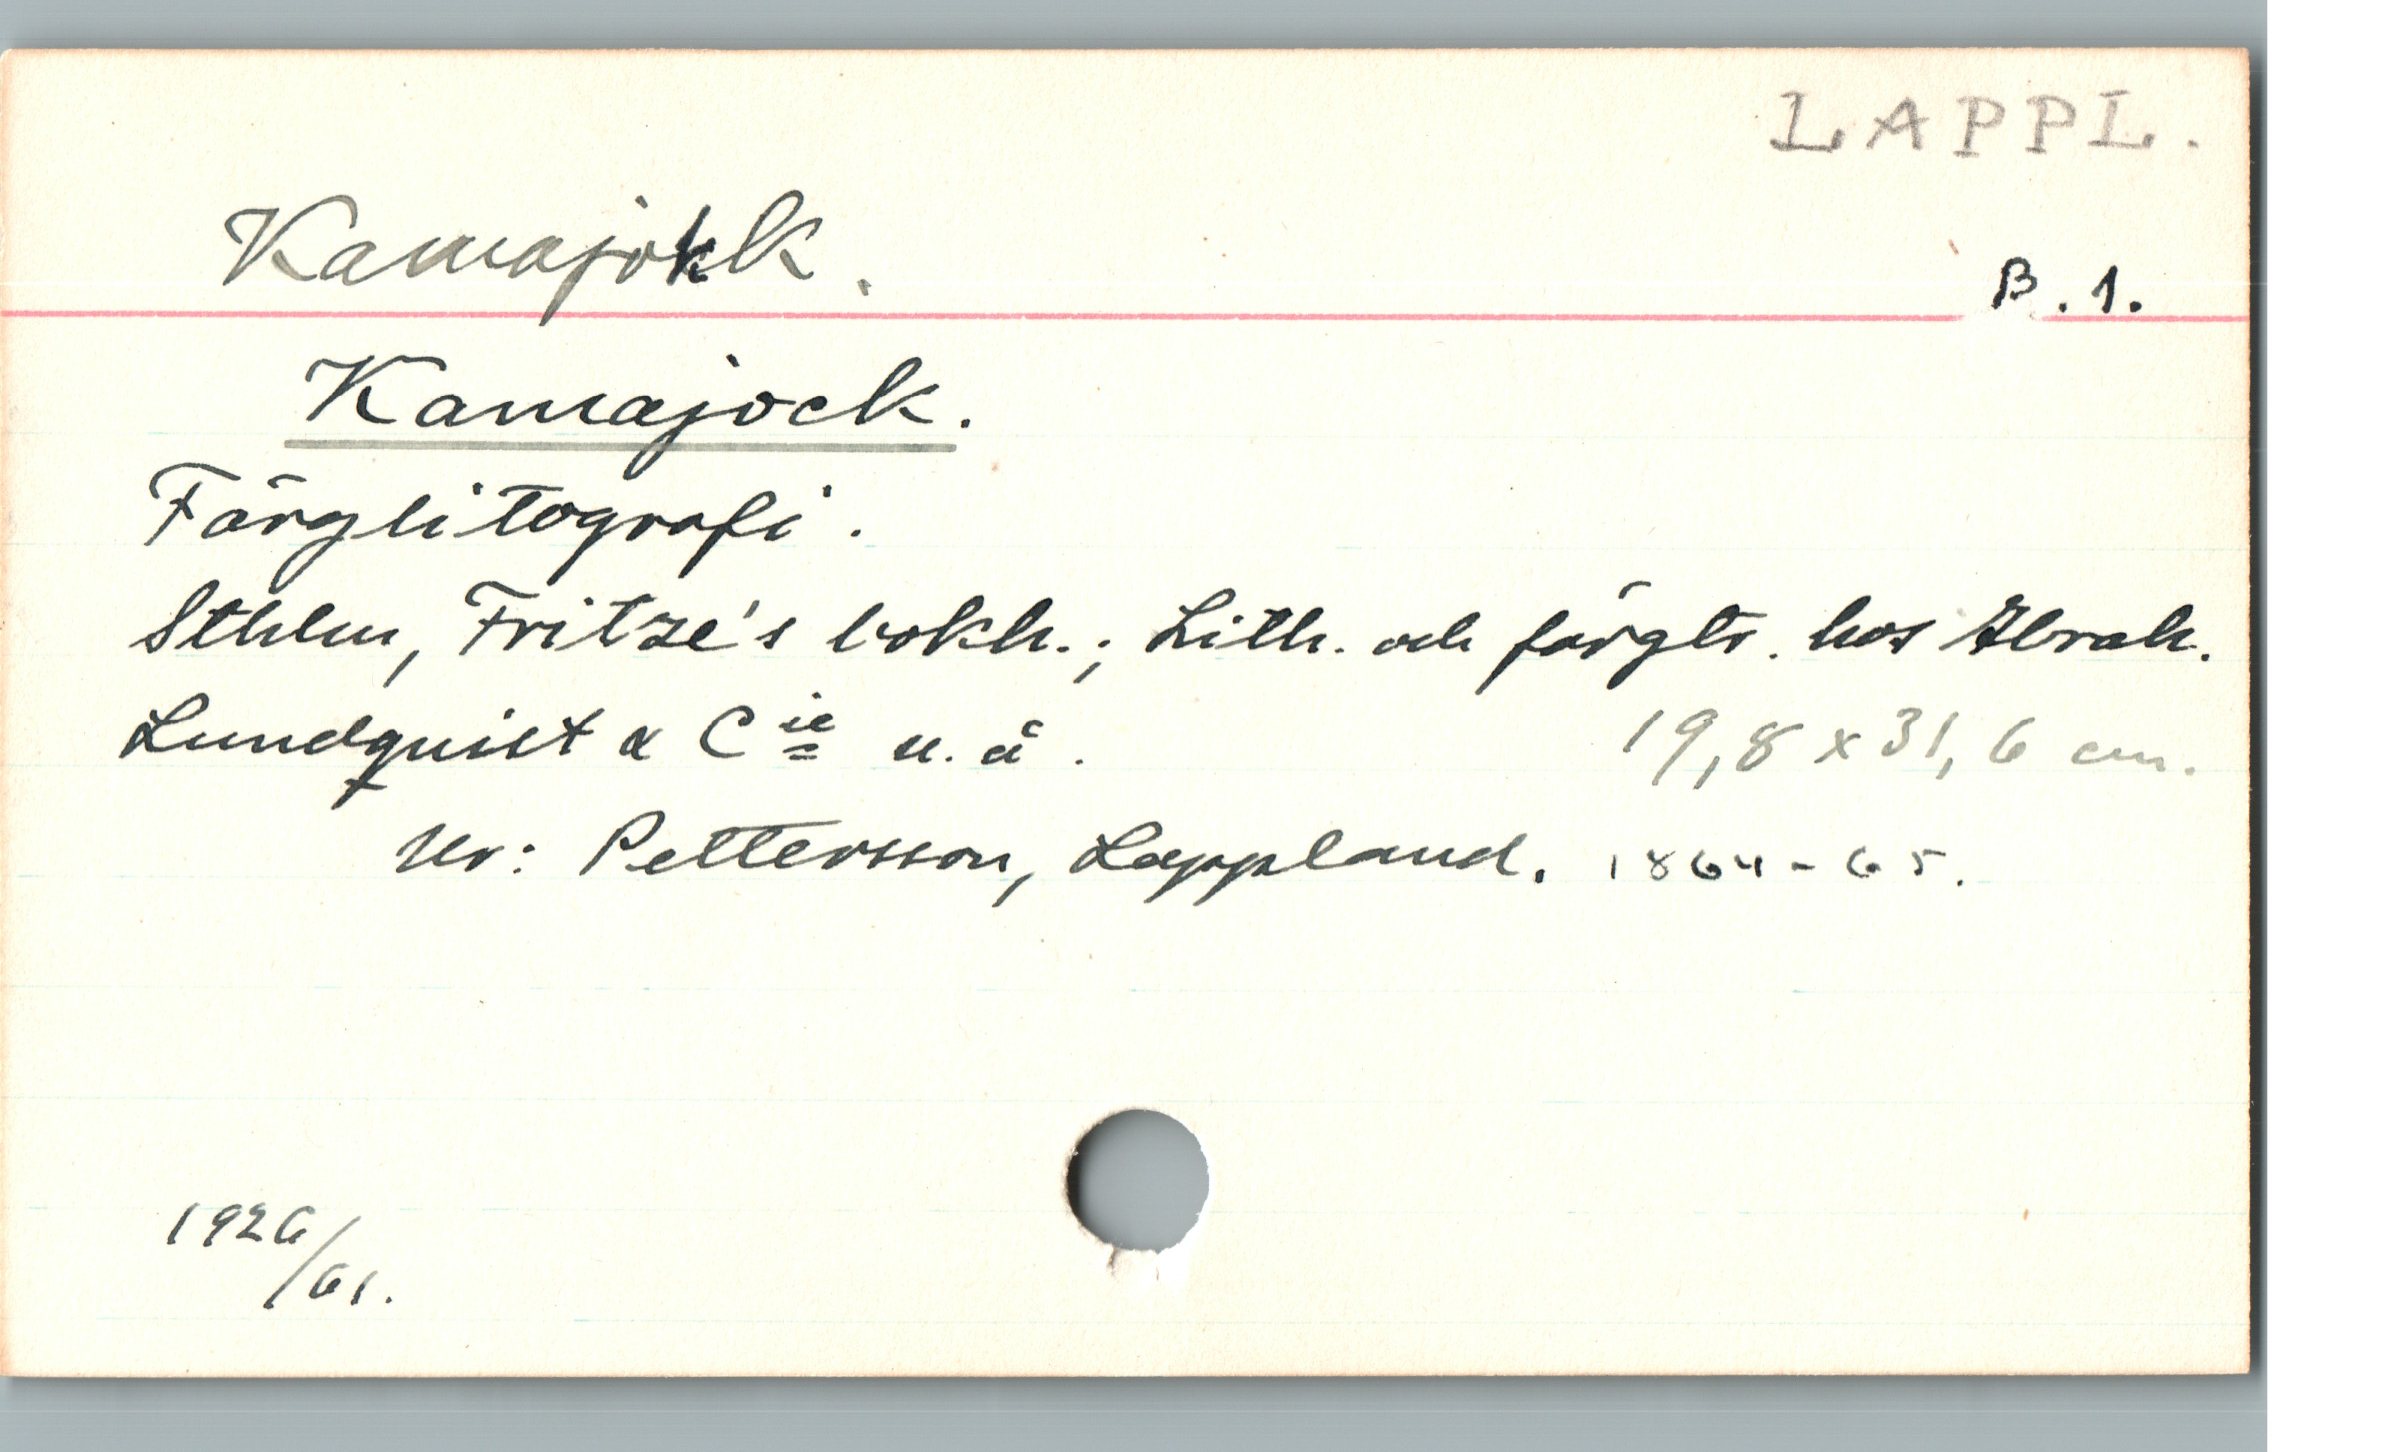 LAPPL.
Kamajokk.
B.1.
Kamajock.
Färglitografi.
Sthlm, Fritze's bokh.; Lith. och färgtr. hos Abrah.
Lundquist & Cie u.å.
19,8 x 31,6 cm.
Ur: Pettersson, Lappland. 1864-65.
1926/61.